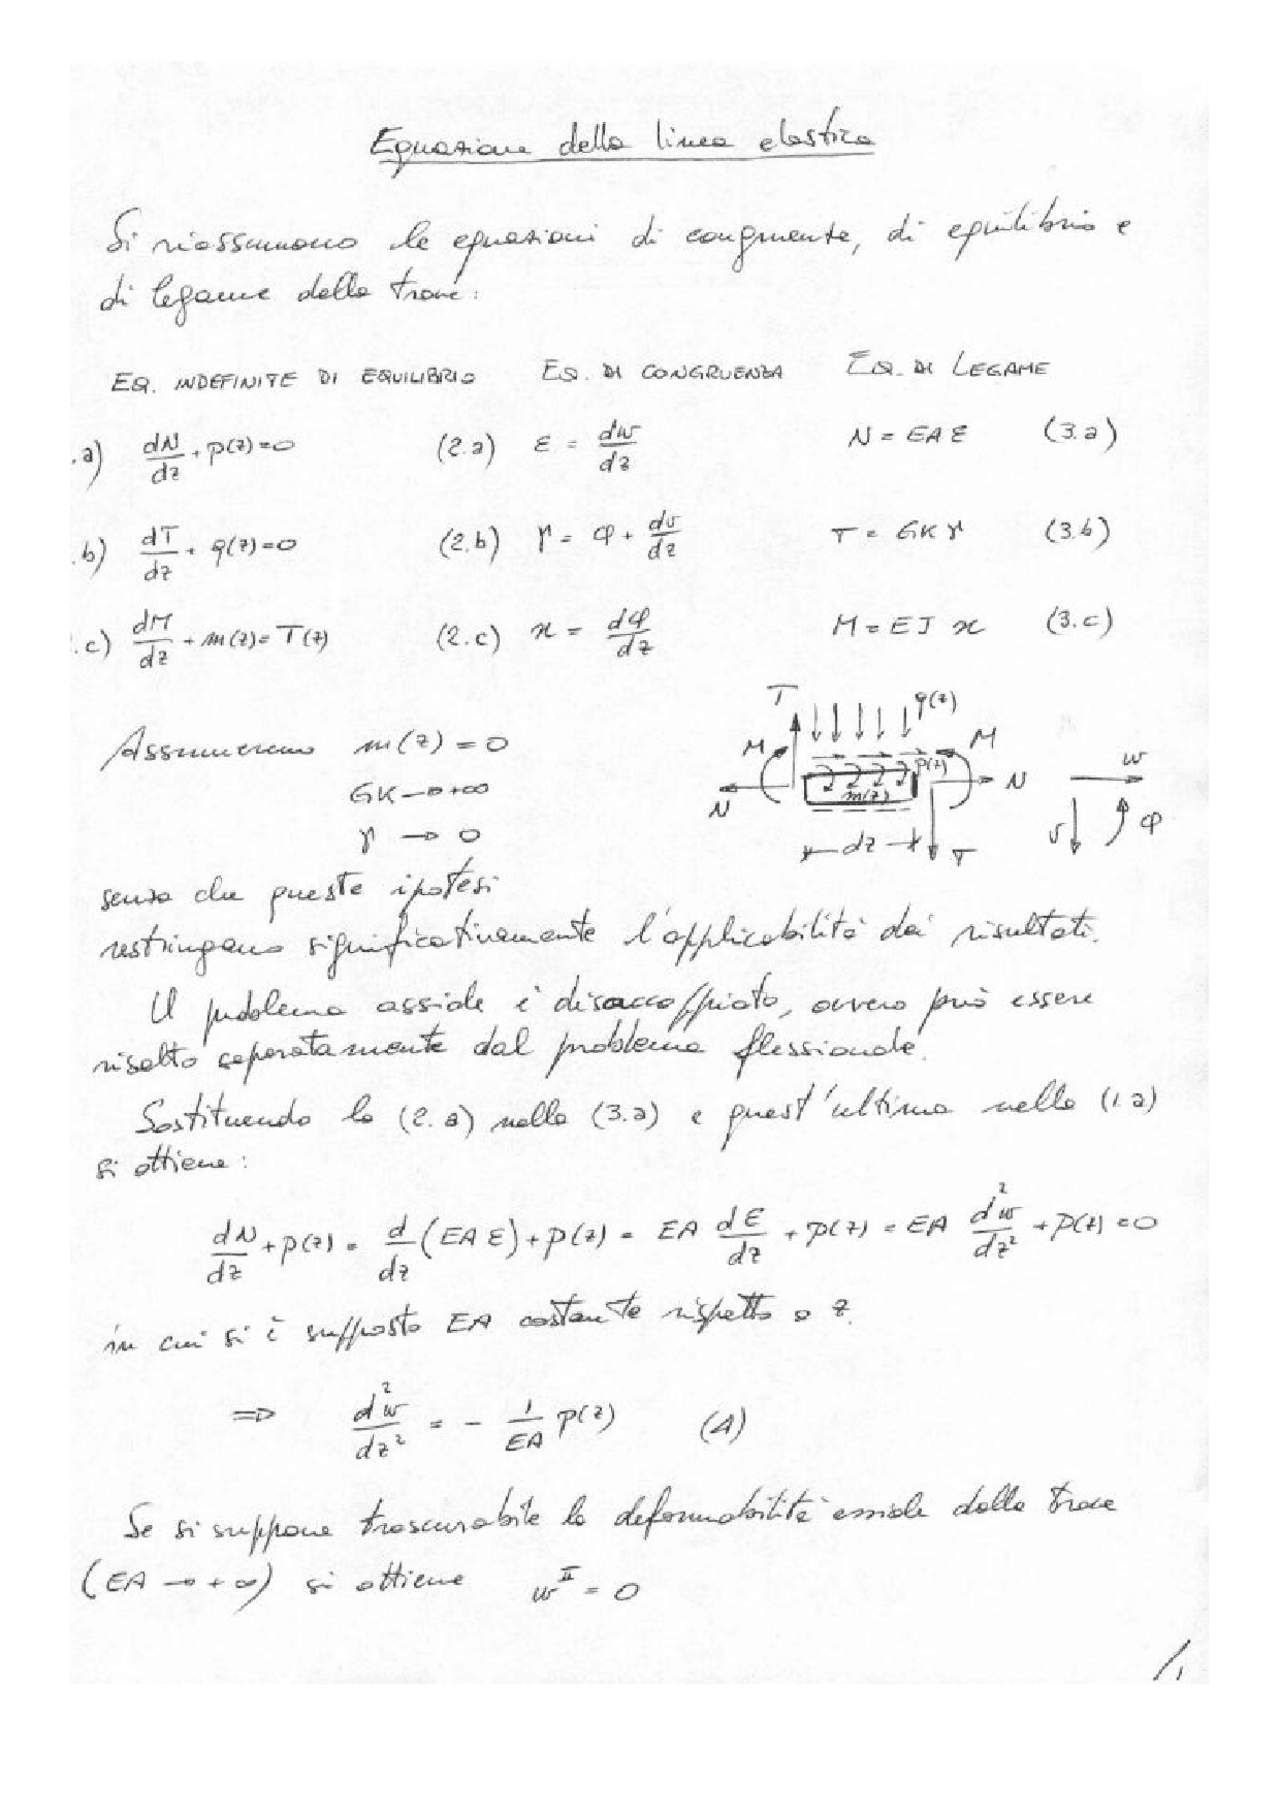 Equazione della linea elastica
Si riassumono le equazioni di congruenza, di equilibrio e
di legame della trave:
EQ. INDEFINITE DI EQUILIBRIO EQ. DI CONGRUENZA EQ. DI LEGAME
.a) dN/dz + p(z) = 0 (2.a) ε = dw/dz N = EA ε (3.a)
.b) dT/dz + q(z) = 0 (2.b) γ = φ + dv/dz T = GK γ (3.b)
.c) dM/dz + m(z) = T(z) (2.c) χ = dφ/dz M = EJ χ (3.c)
T q(z)
M M
p(z)
N m(z) N
dz T
w
v φ
Assumeremo m(z) = 0
GK → +∞
γ → 0
senza che queste ipotesi
restringano significativamente l'applicabilità dei risultati.
Il problema assiale è disaccoppiato, ovvero può essere
risolto separatamente dal problema flessionale.
Sostituendo la (2.a) nella (3.a) e quest'ultima nella (1.a)
si ottiene:
dN/dz + p(z) = d/dz (EA ε) + p(z) = EA dε/dz + p(z) = EA d²w/dz² + p(z) = 0
in cui si è supposto EA costante rispetto a z.
⇒ d²w/dz² = - 1/EA p(z) (A)
Se si suppone trascurabile la deformabilità assiale della trave
(EA → +∞) si ottiene w^II = 0
/1